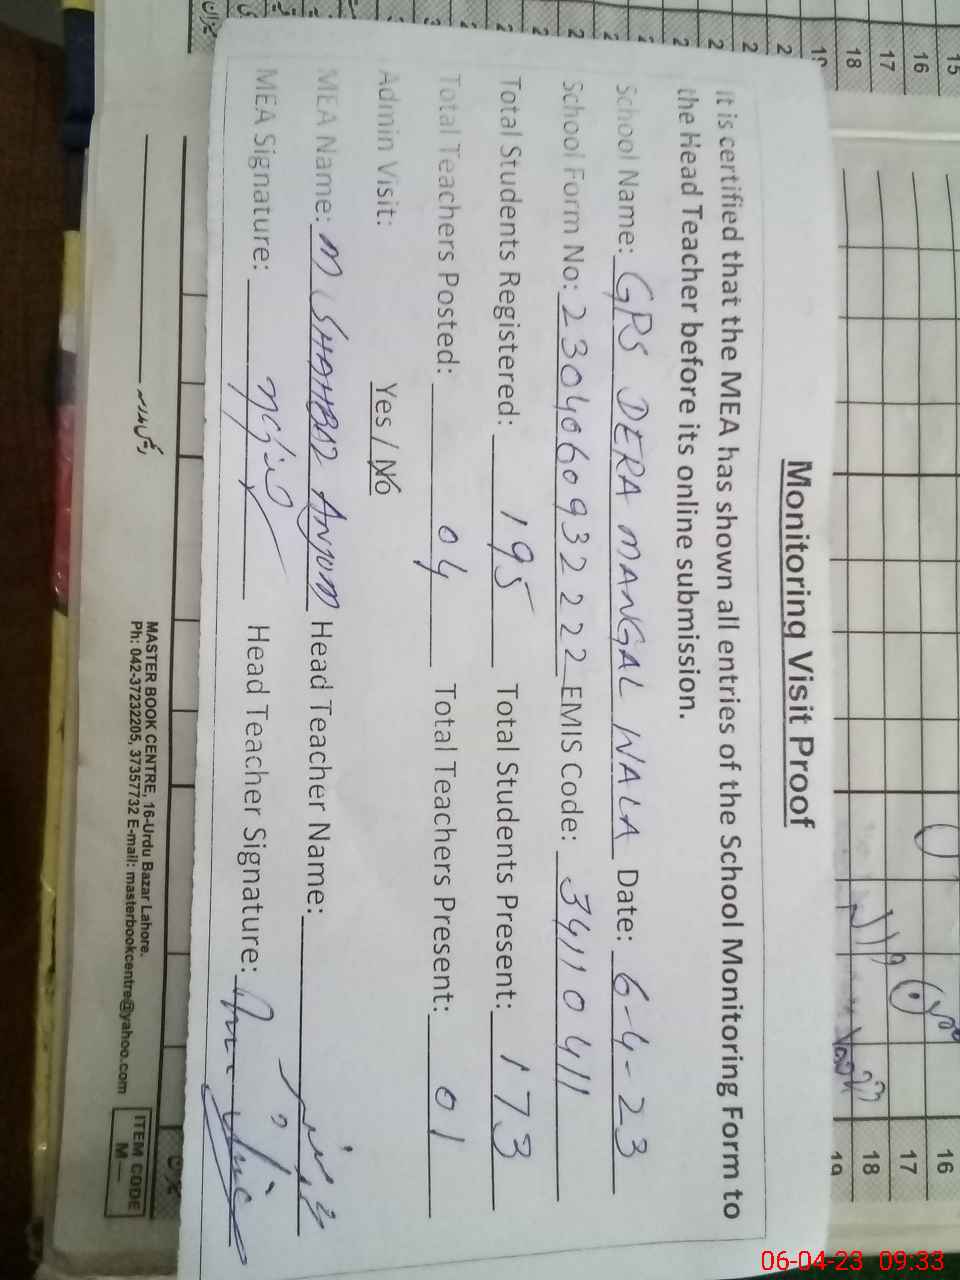 Monitoring Visit Proof
It is certified that the MEA has shown all entries of the School Monitoring Form to
the Head Teacher before its online submission.
School Name: GPS DERA MANGAL WALA Date: 6-4-23
School Form No: 2304060932222 EMIS Code: 34110411
Total Students Registered: 195 Total Students Present: 173
Total Teachers Posted: 04 Total Teachers Present: 01
Admin Visit: Yes / No
MEA Name: M SHAHBAZ ANJUM Head Teacher Name:
MEA Signature: Head Teacher Signature:
MASTER BOOK CENTRE, 16-Urdu Bazar Lahore.
Ph: 042-37232205, 37357732 E-mail: masterbookcentre@yahoo.com
ITEM CODE
M —
15
16
17
18
19
2
2
2
2
2
16
17
18
19
06-04-23 09:33